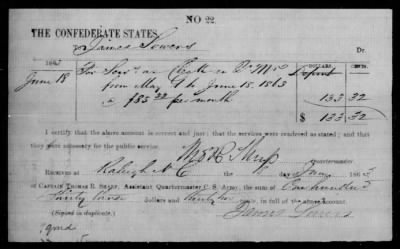 NO 22.
THE CONFEDERATE STATES,
To James Sowers Dr.
1863 DOLLARS CENTS.
June 18 For Serv. as in Depot
from May 1 to June 18, 1863
@ $83 33 per month 133 32
$ 133 32
I certify that the above account is correct and just; that the services were rendered as stated; and that
they were necessary for the public service.
Quartermaster
RECEIVED AT Raleigh N C the of June 1863
OF CAPTAIN THOMAS R. SHARP, Assistant Quartermaster C. S. Army, the sum of One hundred
Thirty three dollars and thirty two cents, in full of the above account.
(Signed in duplicate.) James Sowers